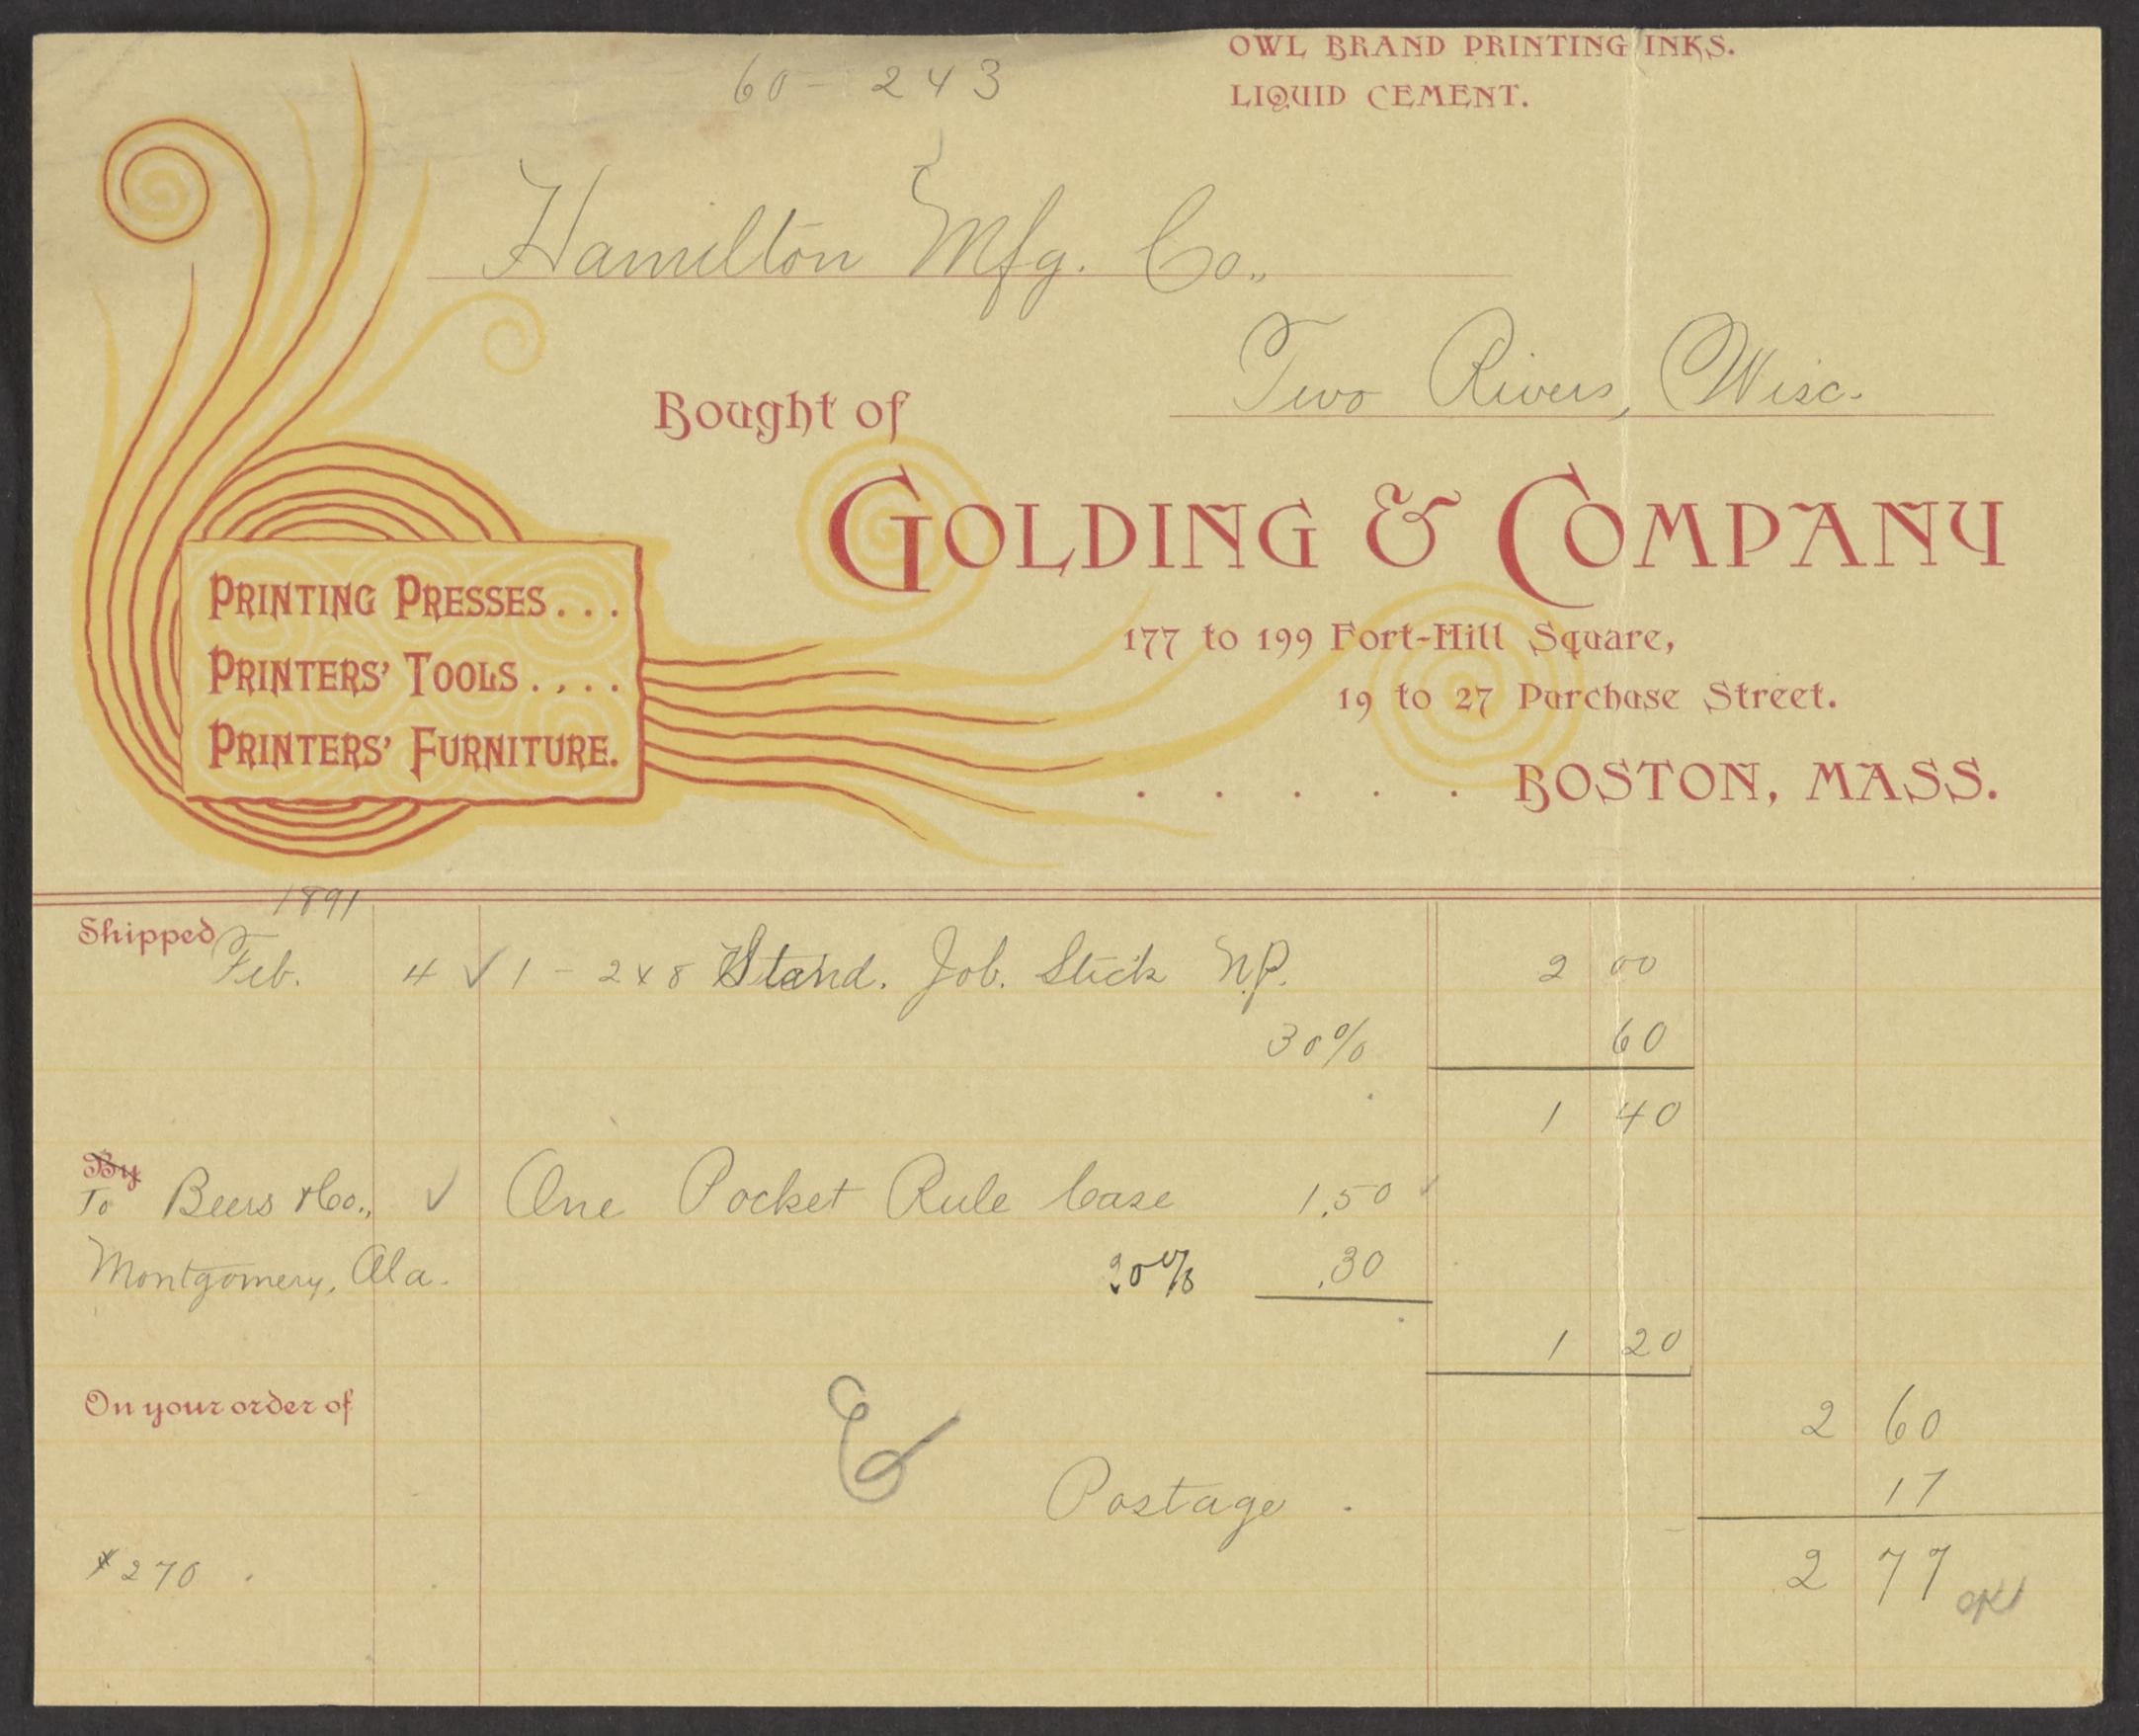 OWL BRAND PRINTING INKS.
60-243
LIQUID CEMENT.
Hamilton Mfg. Co.,
Two Rivers, Wisc.
Bought of
GOLDING & COMPANY
PRINTING PRESSES...
177 to 199 Fort-Hill Square,
PRINTERS' TOOLS....
19 to 27 Purchase Street.
PRINTERS' FURNITURE.
..... BOSTON, MASS.
1891
Shipped Feb. 4 ✓ 1 - 2x8 Stand. Job. Stick N.P. 2 00
30% 60
1 40
By
To Beers & Co., ✓ One Pocket Rule Case 1.50
Montgomery, Ala. 20% .30
1 20
On your order of
2 60
Postage . 17
$270 . 2 77 OK